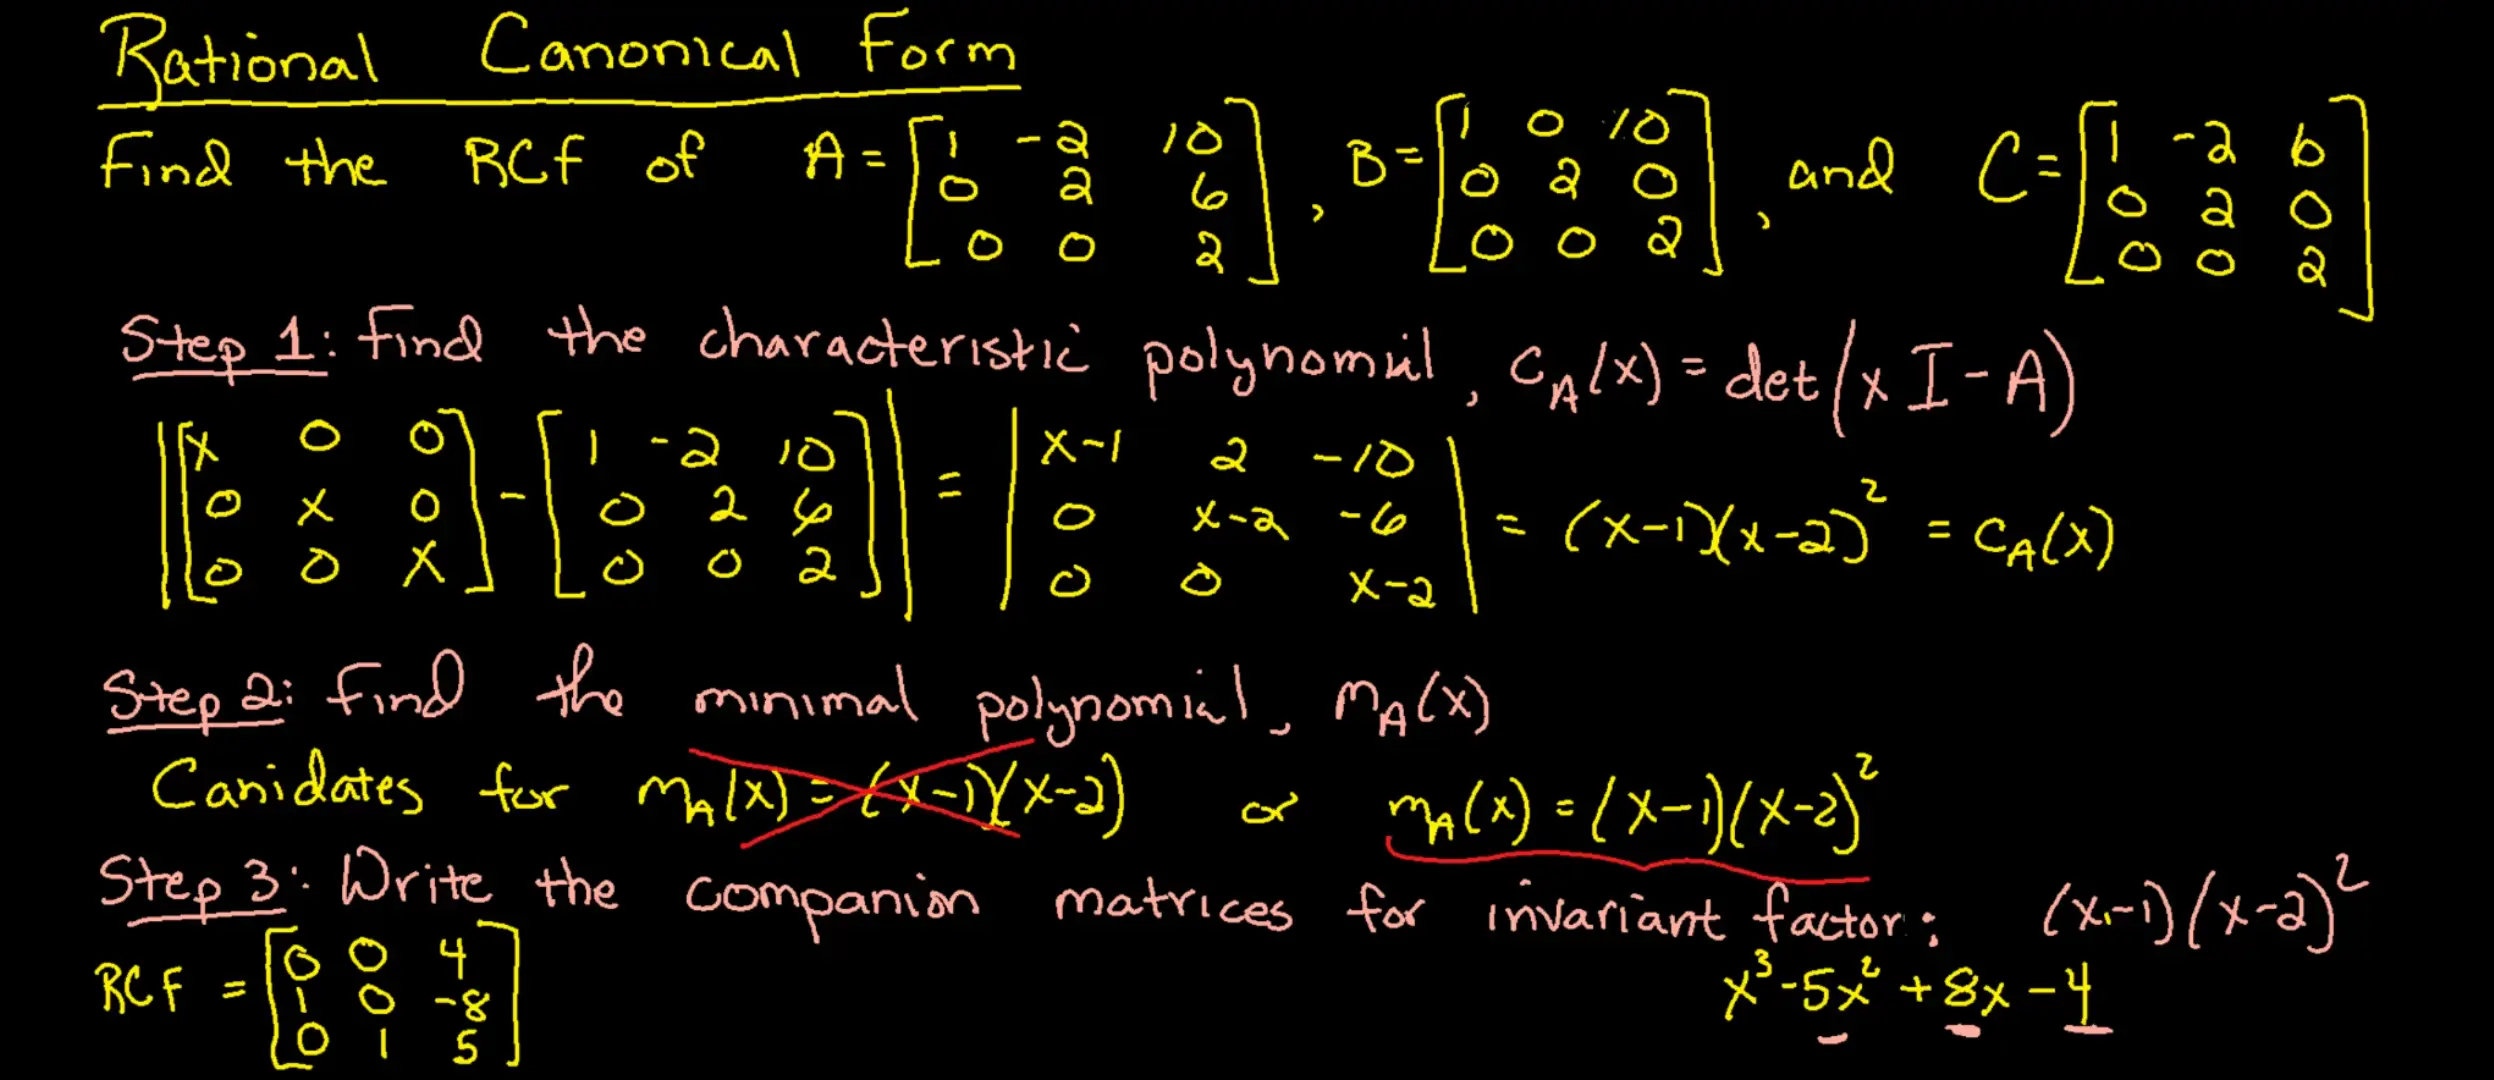 Rational Canonical Form
Find the RCF of A = [1 -2 10; 0 2 6; 0 0 2], B = [1 0 10; 0 2 0; 0 0 2], and C = [1 -2 6; 0 2 0; 0 0 2]
Step 1: Find the characteristic polynomial, C_A(x) = det(x I - A)
|[x 0 0; 0 x 0; 0 0 x] - [1 -2 10; 0 2 6; 0 0 2]| = |x-1 2 -10; 0 x-2 -6; 0 0 x-2| = (x-1)(x-2)² = C_A(x)
Step 2: Find the minimal polynomial, m_A(x)
Canidates for m_A(x) = (x-1)(x-2) or m_A(x) = (x-1)(x-2)²
Step 3: Write the companion matrices for invariant factor: (x-1)(x-2)²
RCF = [0 0 4; 1 0 -8; 0 1 5]
x³ - 5x² + 8x - 4